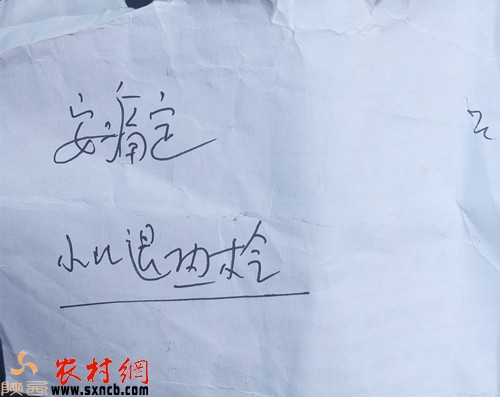 安痛定
小儿退热栓
农村網
www.sxncb.com